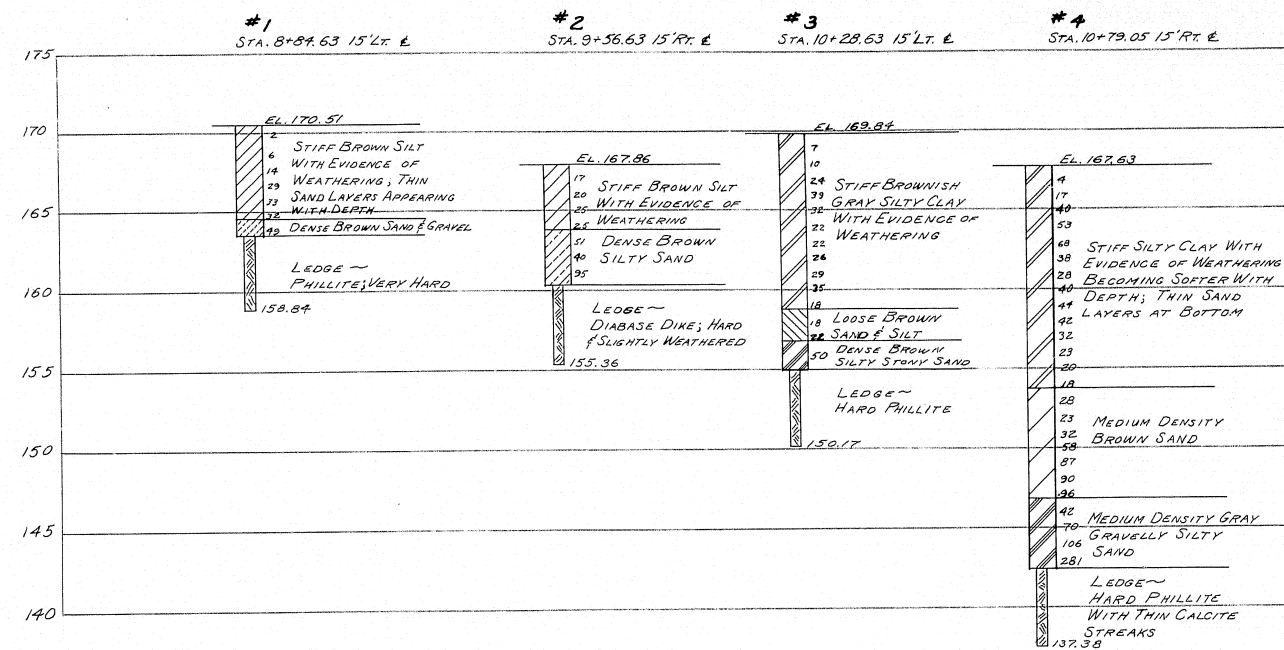 #1
STA. 8+84.63 15'LT. ℄
#2
STA. 9+56.63 15'RT. ℄
#3
STA. 10+28.63 15'LT. ℄
#4
STA. 10+79.05 15'RT. ℄
175
170
165
160
155
150
145
140
EL. 170.51
2
6
14
29
33
32
49
STIFF BROWN SILT
WITH EVIDENCE OF
WEATHERING; THIN
SAND LAYERS APPEARING
WITH DEPTH
DENSE BROWN SAND & GRAVEL
LEDGE~
PHILLITE; VERY HARD
158.84
EL. 167.86
17
20
25
25
51
40
95
STIFF BROWN SILT
WITH EVIDENCE OF
WEATHERING
DENSE BROWN
SILTY SAND
LEDGE~
DIABASE DIKE; HARD
& SLIGHTLY WEATHERED
155.36
EL. 169.84
7
10
24
39
32
22
22
26
29
35
18
18
22
50
STIFF BROWNISH
GRAY SILTY CLAY
WITH EVIDENCE OF
WEATHERING
LOOSE BROWN
SAND & SILT
DENSE BROWN
SILTY STONY SAND
LEDGE~
HARD PHILLITE
150.17
EL. 167.63
4
17
40
53
68
38
28
40
44
42
32
23
20
18
28
23
32
58
87
90
96
42
70
106
281
STIFF SILTY CLAY WITH
EVIDENCE OF WEATHERING
BECOMING SOFTER WITH
DEPTH; THIN SAND
LAYERS AT BOTTOM
MEDIUM DENSITY
BROWN SAND
MEDIUM DENSITY GRAY
GRAVELLY SILTY
SAND
LEDGE~
HARD PHILLITE
WITH THIN CALCITE
STREAKS
137.38